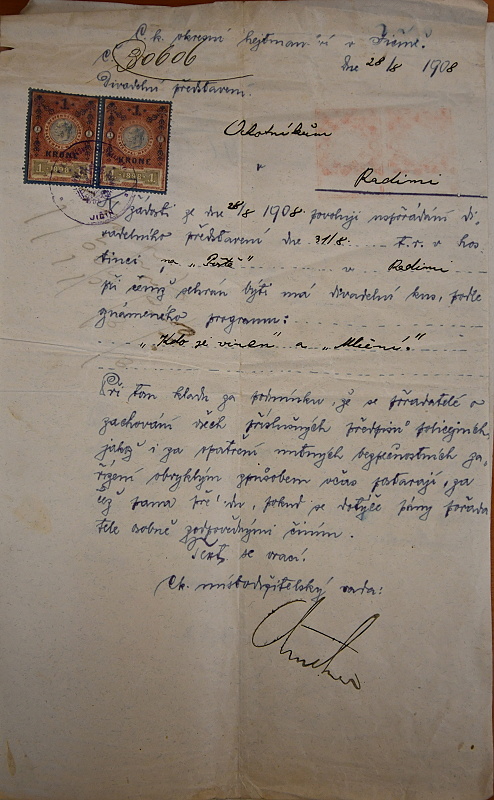 C. k. okresní hejtmanství v Jičíně.
Č. 30606 dne 28/8 1908
Divadelní představení.
1 1
KRONE KRONE
1 1898 1 1898
JIČÍN
Ochotníkům
v
Radimi
K žádosti ze dne 28/8 1908 povoluji uspořádání di-
vadelního představení dne 31/8 t. r. v hos-
tinci na "Poště" v Radimi
při čemž sehrán býti má divadelní kus, podle
známeného programu:
"Kdo je vinen" a "Mlčení."
Při tom kladu za podmínku, že se pořadatelé o
zachování všech příslušných předpisů policejních,
jakož i za opatření nutných bezpečnostních za-
řízení obvyklým způsobem včas postarají, za
což pana, pokud se dotýče pány pořada
tele osobně zodpovědnými činím.
Text se vrací.
Ck. místodržitelský rada: